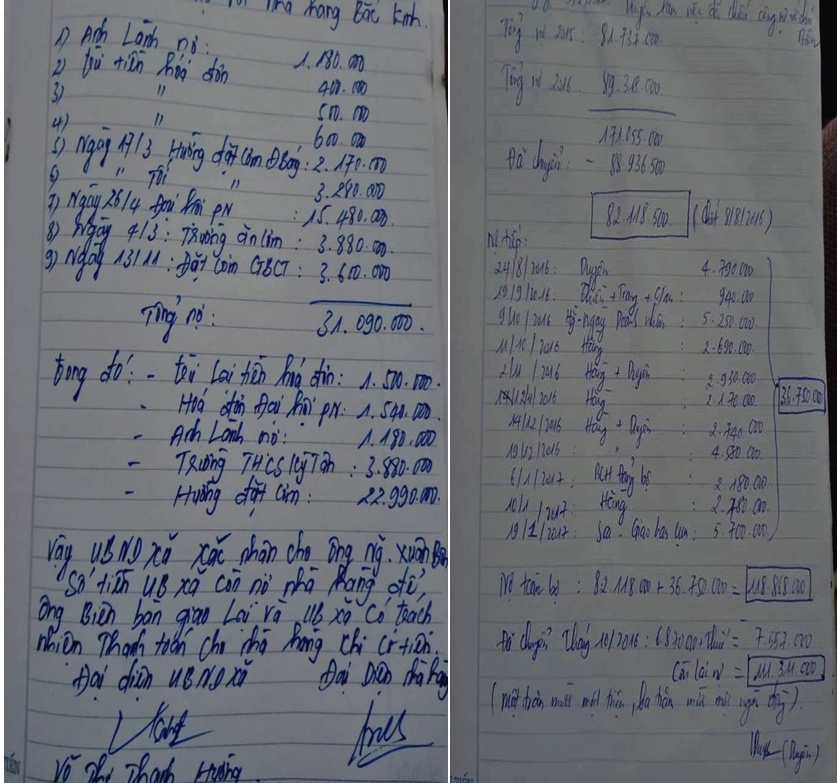 với nhà hàng Bắc Kinh.
1) Anh Lành nợ : 1.180.000
2) Trừ tiền hoá đơn 400.000
3) " 500.000
4) " 600.000
5) Ngày 17/3 Hường đặt cơm Đ Bảng : 2.170.000
6) " Tối " 3.280.000
7) Ngày 26/4 Đại hội PN : 15.480.000
8) Ngày 4/3 : Trường ăn cơm : 3.880.000
9) Ngày 13/11 : Đặt cơm GBCT : 3.600.000
Tổng nợ : 31.090.000.
Trong đó : - Trừ lại tiền hoá đơn : 1.500.000.
- Hoá đơn Đại hội PN : 1.540.000
- Anh Lành nợ : 1.180.000
- Trường THCS Kỳ Tân : 3.880.000
- Hường đặt cơm : 22.990.000.
Vậy UBND xã xác nhận cho ông Ng. Xuân
Số tiền UB xã còn nợ nhà hàng đó,
Ông Biên bàn giao lại và UB xã có trách
nhiệm thanh toán cho nhà hàng khi có tiền.
Đại diện UBND xã Đại Diện nhà hàng
Võ Thị Thanh Hường.
Tổng nợ 2015 : 81.737.000.
Tổng nợ 2016 : 89.318.000.
171.055.000
Đã chuyển : - 88.936.500
82.118.500. (Chốt 8/8/2016)
Nợ tiếp :
24/8/2016 : Duyên 4.790.000
19/9/2016 : + Trang + : 940.000
9/10/2016 ngày Doanh nhân : 5.250.000
11/10/2016 Hằng : 2.690.000
2/11/2016 Hằng + Duyên : 2.930.000
Hằng : 2.170.000
36.750.000
14/12/2016 Hằng + Duyên : 2.740.000
19/12/2016 " : 4.580.000
6/1/2017 : BCH Đảng bộ : 2.180.000
10/1/2017 : Hằng : 2.780.000
19/1/2017 : Giao ban cụm : 5.700.000
Nợ toàn bộ : 82.118.000 + 36.750.000 = 118.868.000
Đã chuyển Tháng 10/2016 : 6.870.000 + Thuế = 7.557.000
Còn lại nợ = 111.311.000
(Một trăm mười một triệu, ba trăm mười một ngàn đồng).
(Duyên)